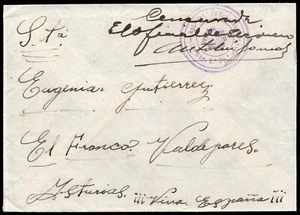 Censurada
El Oficial de
S.ta
Eugenia Gutierrez
El Franco Valdepares.
Asturias. ¡¡¡Viva España!!!